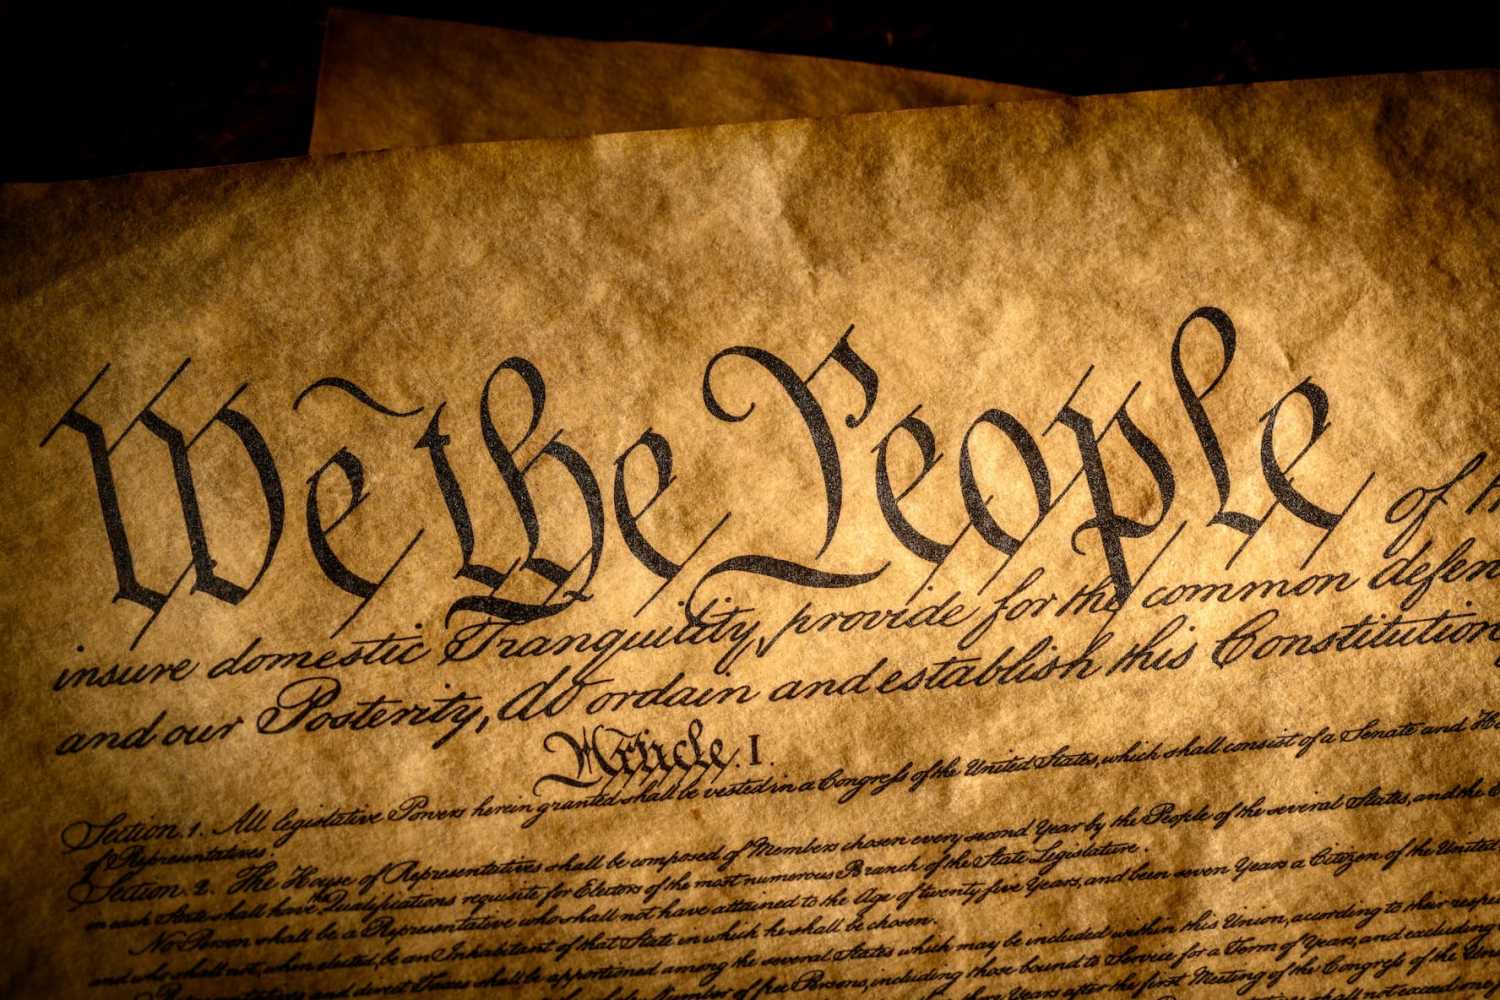 We the People of
insure domestic Tranquility, provide for the common defen
and our Posterity, do ordain and establish this Constitution
Article. I.
Section. 1. All legislative Powers herein granted shall be vested in a Congress of the United States, which shall consist of a Senate and Ho
of Representatives.
Section. 2. The House of Representatives shall be composed of Members chosen every second Year by the People of the several States, and the
in each State shall have the Qualifications requisite for Electors of the most numerous Branch of the State Legislature.
No Person shall be a Representative who shall not have attained to the Age of twenty five Years, and been seven Years a Citizen of the United
and who shall not, when elected, be an Inhabitant of that State in which he shall be chosen.
Representatives and direct Taxes shall be apportioned among the several States which may be included within this Union, according to their respe
Number of free Persons, including those bound to Service for a Term of Years, and excluding
Years after the first Meeting of the Congress of the Uni
shall not exceed one